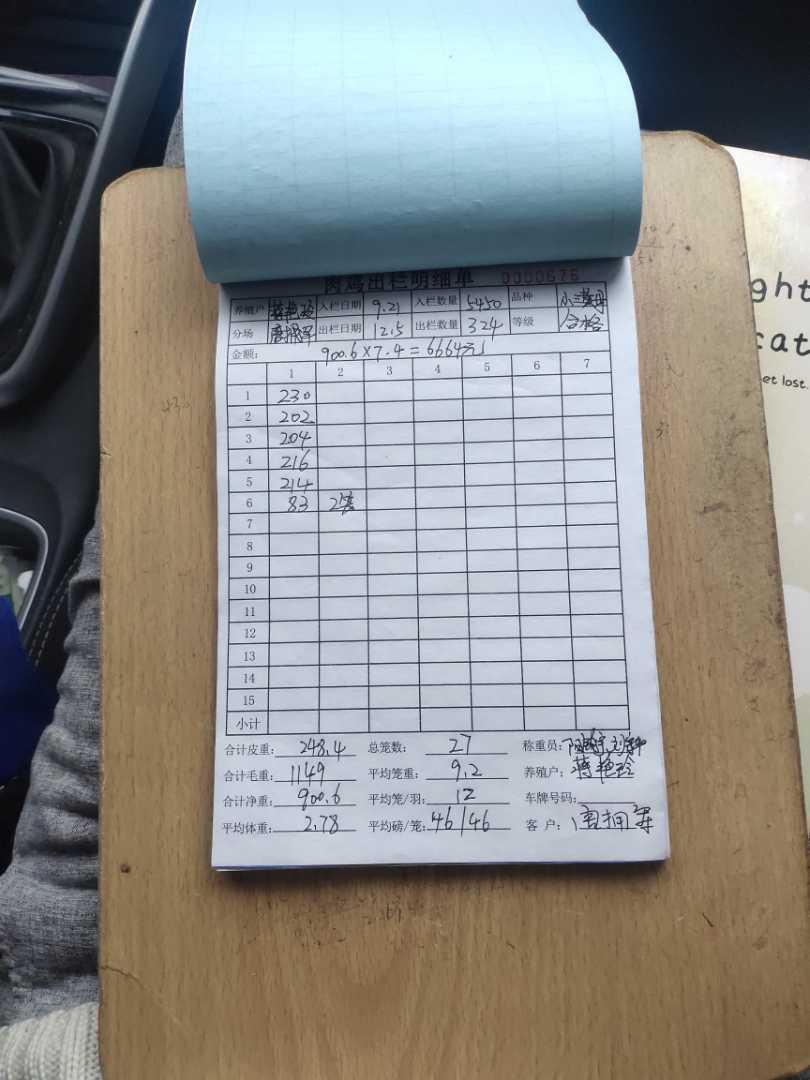 肉鸡出栏明细单 0000676
养殖户 蒋艳玲 入栏日期 9.21 入栏数量 5450 品种
分场 出栏日期 12.5 出栏数量 324 等级 合格
金额: 900.6×7.4=6664元
1 2 3 4 5 6 7
1 230
2 202
3 204
4 216
5 214
6 83 2笼
7
8
9
10
11
12
13
14
15
小计
合计皮重: 248.4 总笼数: 27 称重员:
合计毛重: 1149 平均笼重: 9.2 养殖户: 蒋艳玲
合计净重: 900.6 平均笼/羽: 12 车牌号码:
平均体重: 2.78 平均磅/笼: 46/46 客户:
ght
cat
et lost.